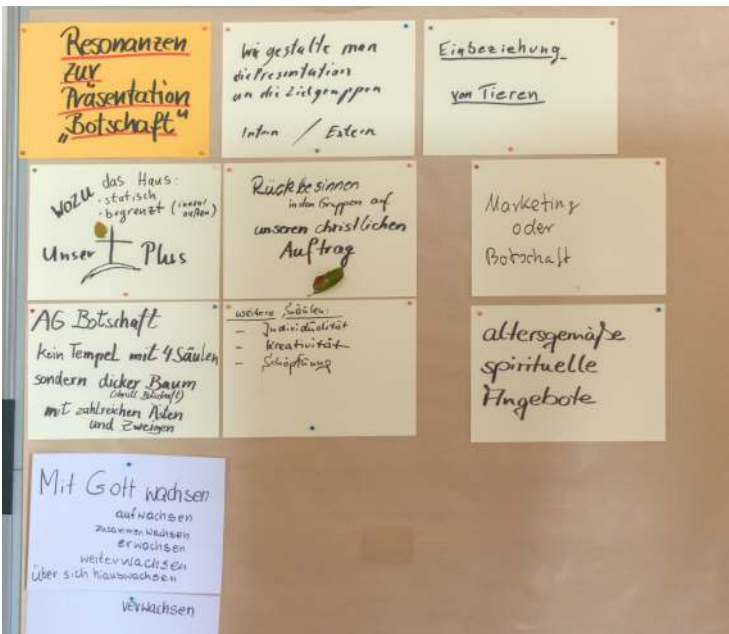 Resonanzen
zur
Präsentation
„Botschaft“
Wie gestalte man
die Presentation
an die Zielgruppen
Intern / Extern
Einbeziehung
von Tieren
Wozu das Haus:
· statisch
· begrenzt (innen/
außen)
Unser Plus
Rückbesinnen
in den Gruppen auf
unseren christlichen
Auftrag
Marketing
oder
Botschaft
AG Botschaft
Kein Tempel mit 4 Säulen
sondern dicker Baum
(christl. Botschaft)
mit zahlreichen Ästen
und Zweigen
weitere Säulen:
- Individualität
- Kreativität
- Schöpfung
altersgemäße
spirituelle
Angebote
Mit Gott wachsen
aufwachsen
zusammenwachsen
erwachsen
weiterwachsen
über sich hinauswachsen
verwachsen